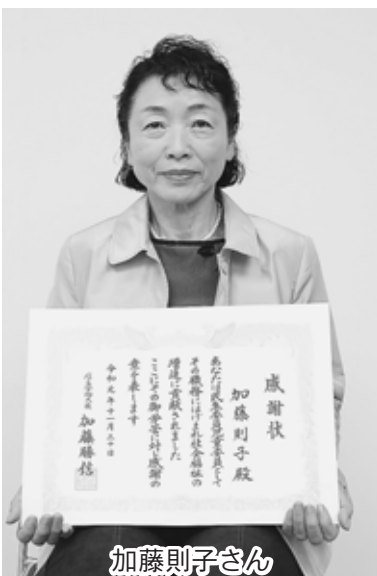 感謝状
加藤則子殿
あなたは民生委員児童委員として
その職務にはげまれ社会福祉の
増進に貢献されました
ここにその御労苦に対し感謝の
意を表します
令和元年十一月三十日
厚生労働大臣 加藤勝信
加藤則子さん